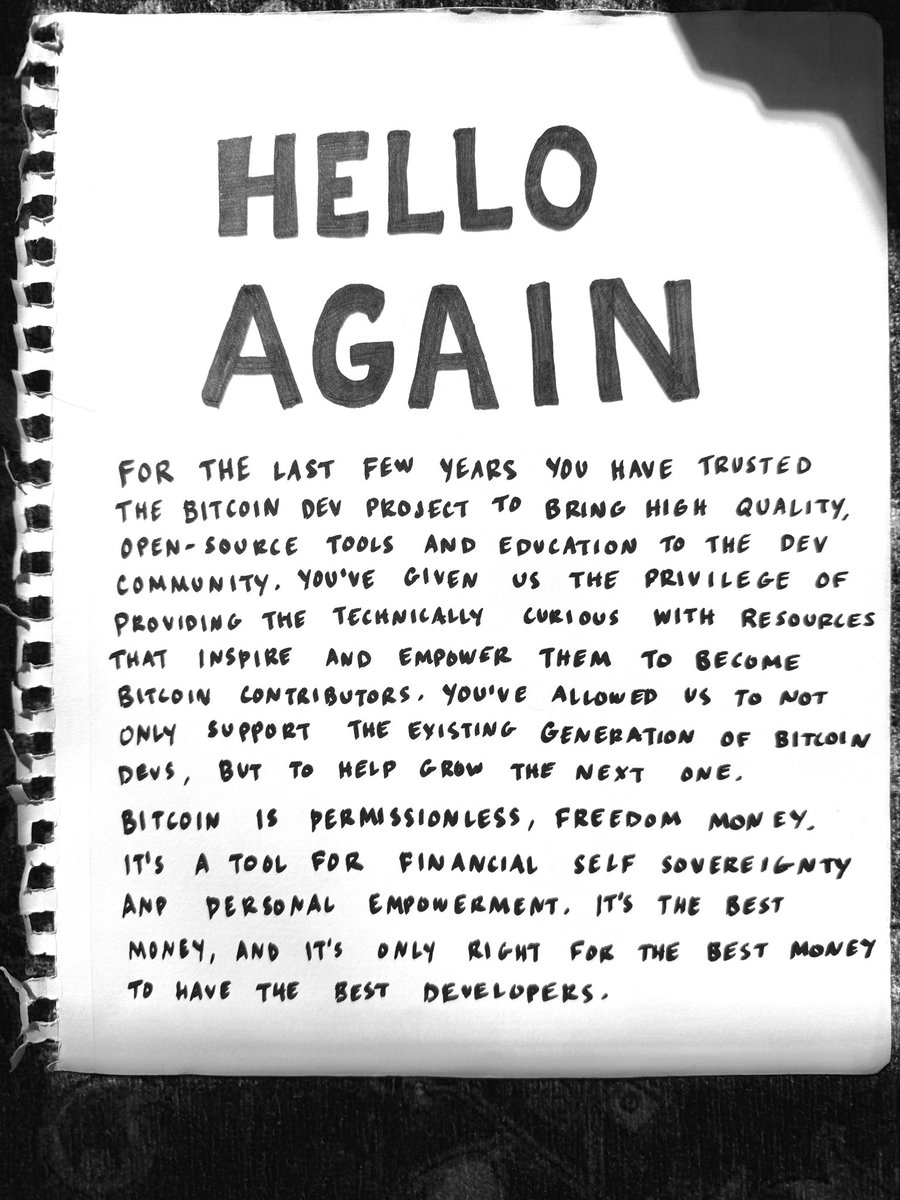 HELLO
AGAIN
FOR THE LAST FEW YEARS YOU HAVE TRUSTED
THE BITCOIN DEV PROJECT TO BRING HIGH QUALITY,
OPEN-SOURCE TOOLS AND EDUCATION TO THE DEV
COMMUNITY. YOU'VE GIVEN US THE PRIVILEGE OF
PROVIDING THE TECHNICALLY CURIOUS WITH RESOURCES
THAT INSPIRE AND EMPOWER THEM TO BECOME
BITCOIN CONTRIBUTORS. YOU'VE ALLOWED US TO NOT
ONLY SUPPORT THE EXISTING GENERATION OF BITCOIN
DEVS, BUT TO HELP GROW THE NEXT ONE.
BITCOIN IS PERMISSIONLESS, FREEDOM MONEY.
IT'S A TOOL FOR FINANCIAL SELF SOVEREIGNTY
AND PERSONAL EMPOWERMENT. IT'S THE BEST
MONEY, AND IT'S ONLY RIGHT FOR THE BEST MONEY
TO HAVE THE BEST DEVELOPERS.